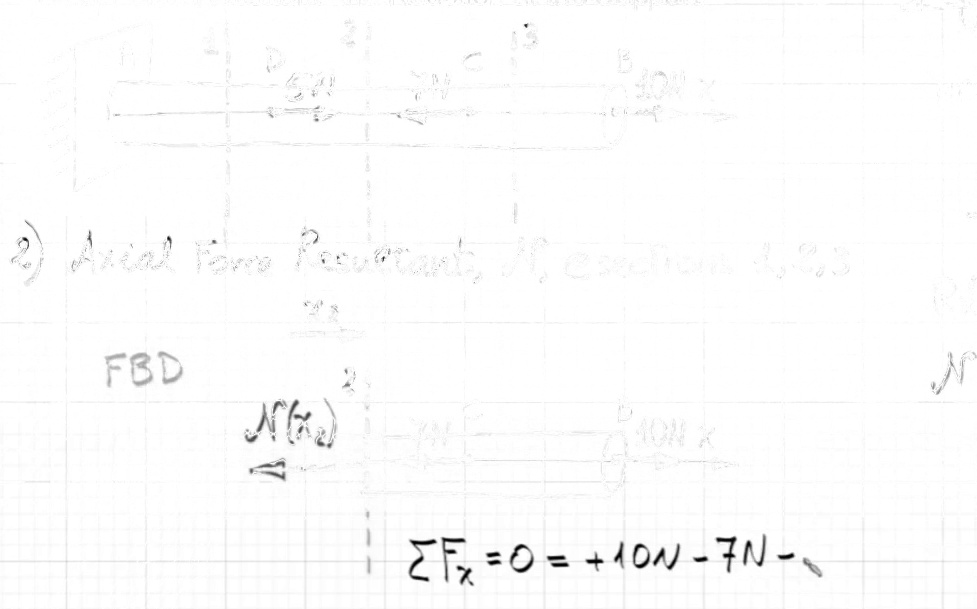 1 2 3
A D 5N 7N C B 10N x
2) Axial Force Resultant, N, @ sections 1, 2, 3
x₂
FBD N
2
N(x₂) 7N C B 10N x
ΣFₓ = 0 = +10N - 7N -